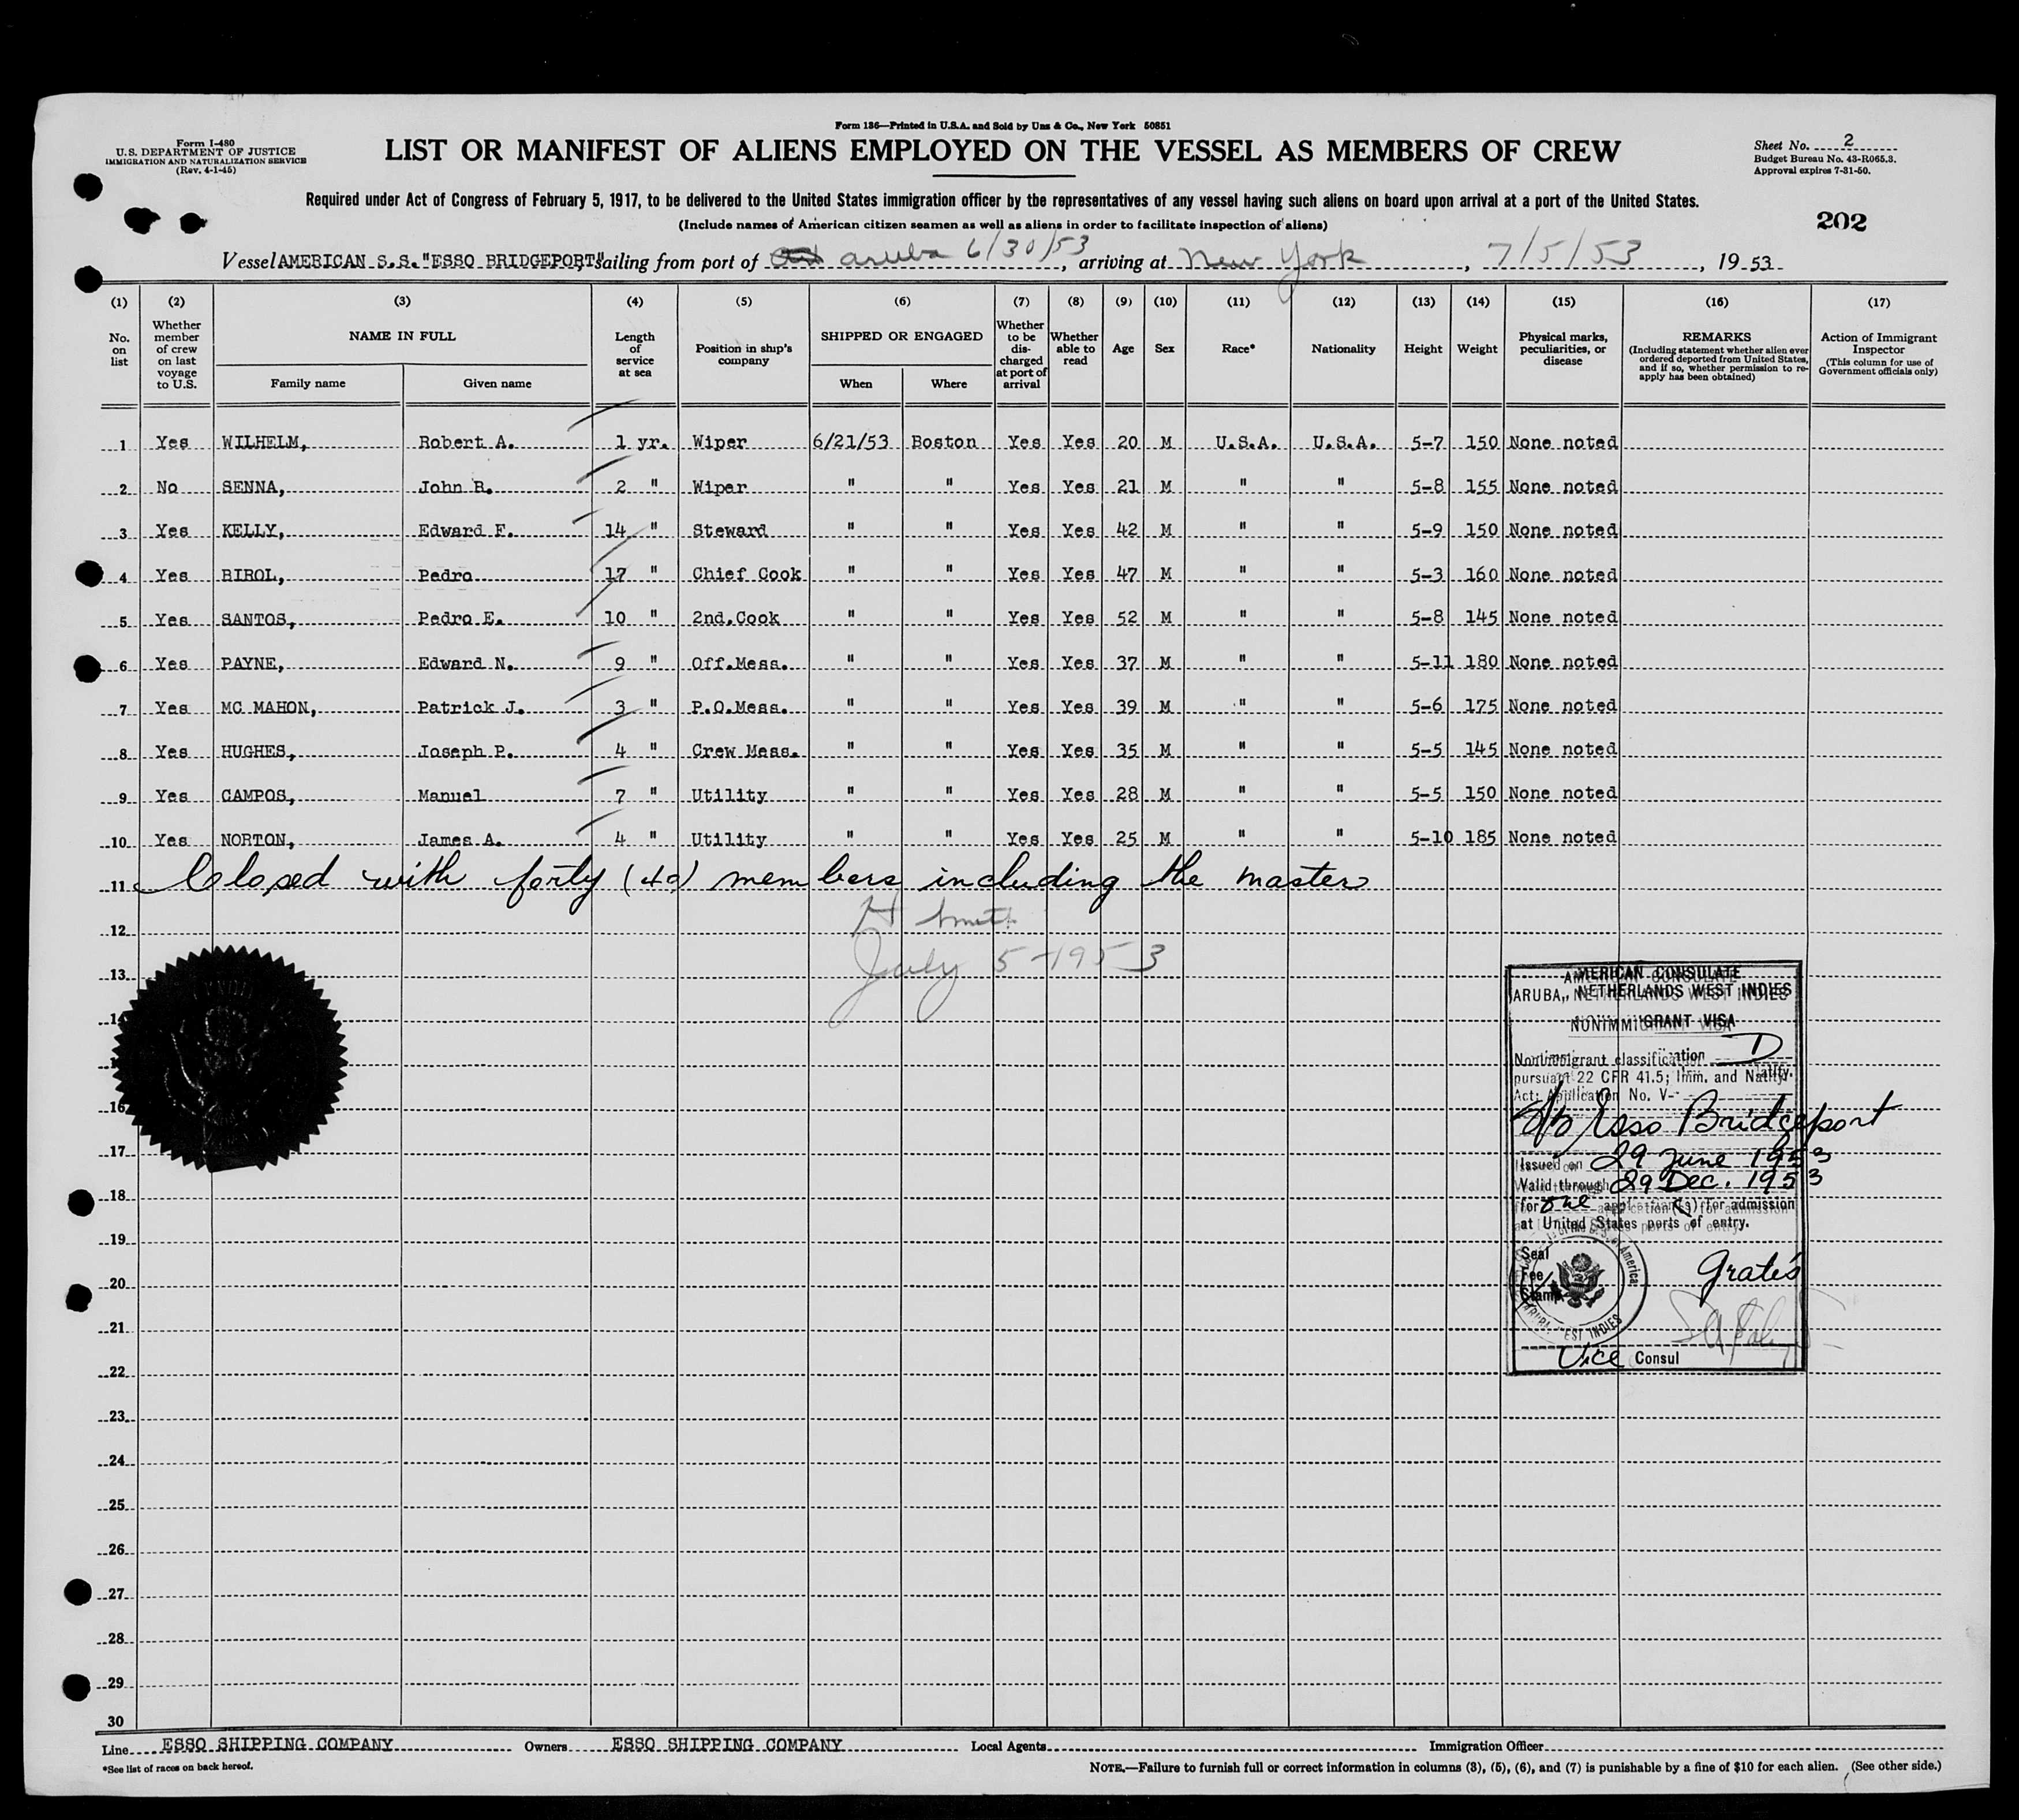 Form 136—Printed in U.S.A. and Sold by Unz & Co., New York 50851
Form I-480
U.S. DEPARTMENT OF JUSTICE
IMMIGRATION AND NATURALIZATION SERVICE
(Rev. 4-1-45)
LIST OR MANIFEST OF ALIENS EMPLOYED ON THE VESSEL AS MEMBERS OF CREW
Sheet No. 2
Budget Bureau No. 43-R065.3.
Approval expires 7-31-50.
Required under Act of Congress of February 5, 1917, to be delivered to the United States immigration officer by the representatives of any vessel having such aliens on board upon arrival at a port of the United States.
(Include names of American citizen seamen as well as aliens in order to facilitate inspection of aliens)
202
Vessel AMERICAN S.S. "ESSO BRIDGEPORT" sailing from port of aruba 6/30/53, arriving at New York, 7/5/53, 19 53
(1) (2) (3) (4) (5) (6) (7) (8) (9) (10) (11) (12) (13) (14) (15) (16) (17)
No. on list
Whether member of crew on last voyage to U.S.
NAME IN FULL
Family name
Given name
Length of service at sea
Position in ship's company
SHIPPED OR ENGAGED
When
Where
Whether to be discharged at port of arrival
Whether able to read
Age
Sex
Race*
Nationality
Height
Weight
Physical marks, peculiarities, or disease
REMARKS
(Including statement whether alien ever ordered deported from United States, and if so, whether permission to re-apply has been obtained)
Action of Immigrant Inspector
(This column for use of Government officials only)
1 Yes WILHELM, Robert A. 1 yr. Wiper 6/21/53 Boston Yes Yes 20 M U.S.A. U.S.A. 5-7 150 None noted
2 No SENNA, John B. 2 " Wiper " " Yes Yes 21 M " " 5-8 155 None noted
3 Yes KELLY, Edward F. 14 " Steward " " Yes Yes 42 M " " 5-9 150 None noted
4 Yes BIROL, Pedro 17 " Chief Cook " " Yes Yes 47 M " " 5-3 160 None noted
5 Yes SANTOS, Pedro E. 10 " 2nd.Cook " " Yes Yes 52 M " " 5-8 145 None noted
6 Yes PAYNE, Edward N. 9 " Off.Mess. " " Yes Yes 37 M " " 5-11 180 None noted
7 Yes MC MAHON, Patrick J. 3 " P.O.Mess. " " Yes Yes 39 M " " 5-6 175 None noted
8 Yes HUGHES, Joseph P. 4 " Crew Mess. " " Yes Yes 35 M " " 5-5 145 None noted
9 Yes CAMPOS, Manuel 7 " Utility " " Yes Yes 28 M " " 5-5 150 None noted
10 Yes NORTON, James A. 4 " Utility " " Yes Yes 25 M " " 5-10 185 None noted
11 Closed with forty (40) members including the master
12 H Smith
13 July 5-1953
14
16
17
18
19
20
21
22
23
24
25
26
27
28
29
30
AMERICAN CONSULATE
ARUBA, NETHERLANDS WEST INDIES
NONIMMIGRANT VISA
Nonimmigrant classification D
pursuant 22 CFR 41.5; Imm. and Natlty.
Act; Application No. V-
Esso Bridgeport
Issued on 29 June 1953
Valid through 29 Dec. 1953
for one application(s) for admission
at United States ports of entry.
Seal
Fee
Stamp
gratis
Vice Consul
Line ESSO SHIPPING COMPANY Owners ESSO SHIPPING COMPANY Local Agents Immigration Officer
*See list of races on back hereof.
NOTE.—Failure to furnish full or correct information in columns (3), (5), (6), and (7) is punishable by a fine of $10 for each alien. (See other side.)